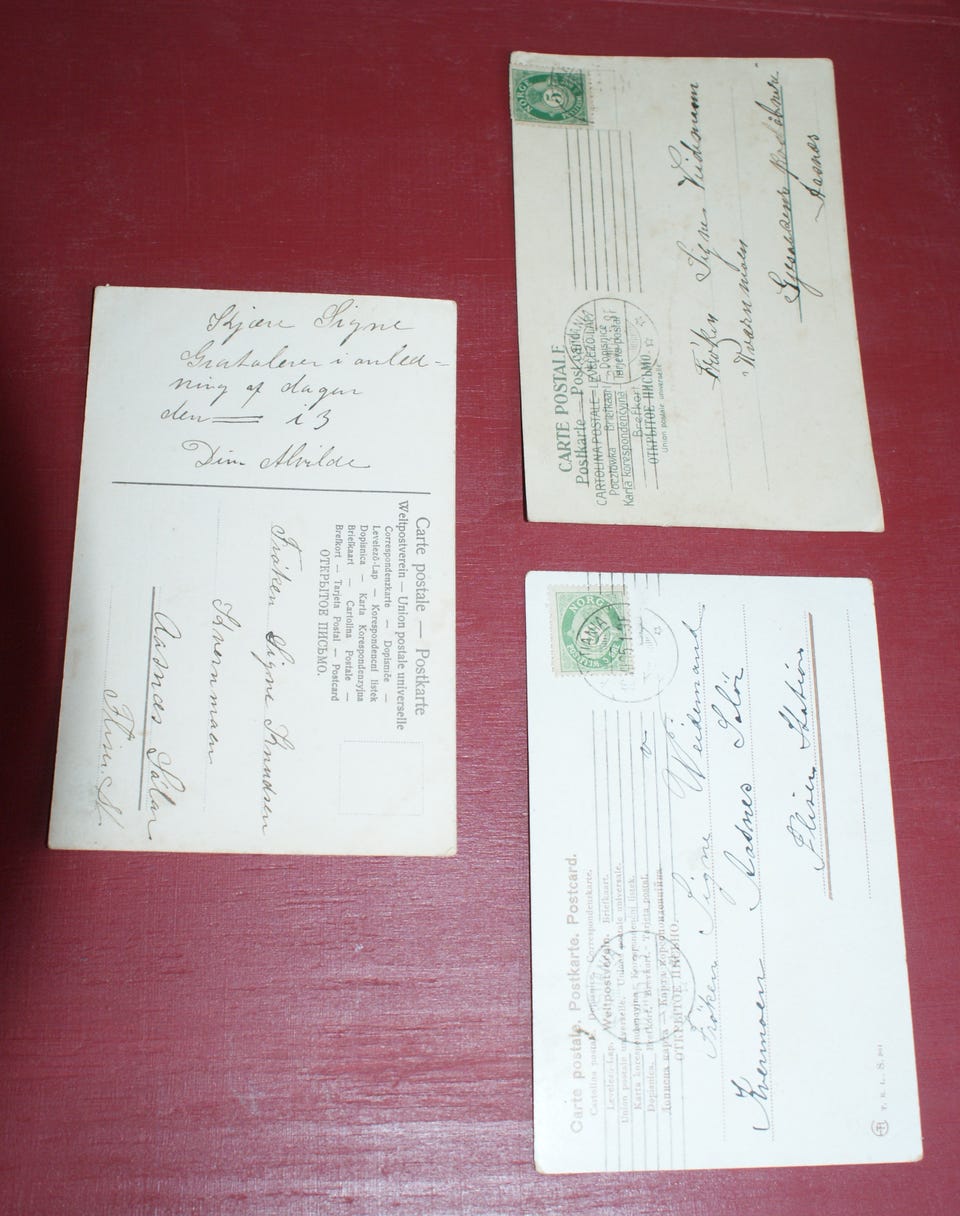 Kjære Signe
Gratulerer i anled-
ning af dagen
den i 3
Din Alvilde
Carte postale — Postkarte
Weltpostverein — Union postale universelle
Correspondenzkarte — Dopisnice —
Levelező-Lap — Korespondencni listek
Dopisnica — Karta Korespondenzyjna
Briefkaart — Cartolina Postale —
Brefkort — Tarjeta Postal — Postcard
ОТКРЫТОЕ ПИСЬМО.
Frøken Signe Knudsen
Kvernmoen
Aasnæs Solør
Flisen St.
NORGE
5
CARTE POSTALE
Postkarte – Postkarte
CARTOLINA POSTALE – LEVELEZŐ-LAP
Pocztówka Briefkaart – Dopisnice
Karta korespondencyjna Tarjeta postal
Brefkort
ОТКРЫТОЕ ПИСЬМО
Union postale universelle
Frøken Signe Veidemann
Kværnmoen
Gjesaasens
Aasnæs
NORGE
Carte postale. Postkarte. Postcard.
Cartolina postale. Correspondenzkarte.
Levelező-Lap. Weltpostverein. Briefkaart.
Union postale universelle. Union postale universale.
Karta korespondencyjna. Korespondenčni listek.
Dopisnica. Brevkort. Tarjeta postal.
ОТКРЫТОЕ ПИСЬМО.
Frøken Signe Weidemand
Kvernmoen Aasnes Solör
Flisen Station
T. R. L. S.